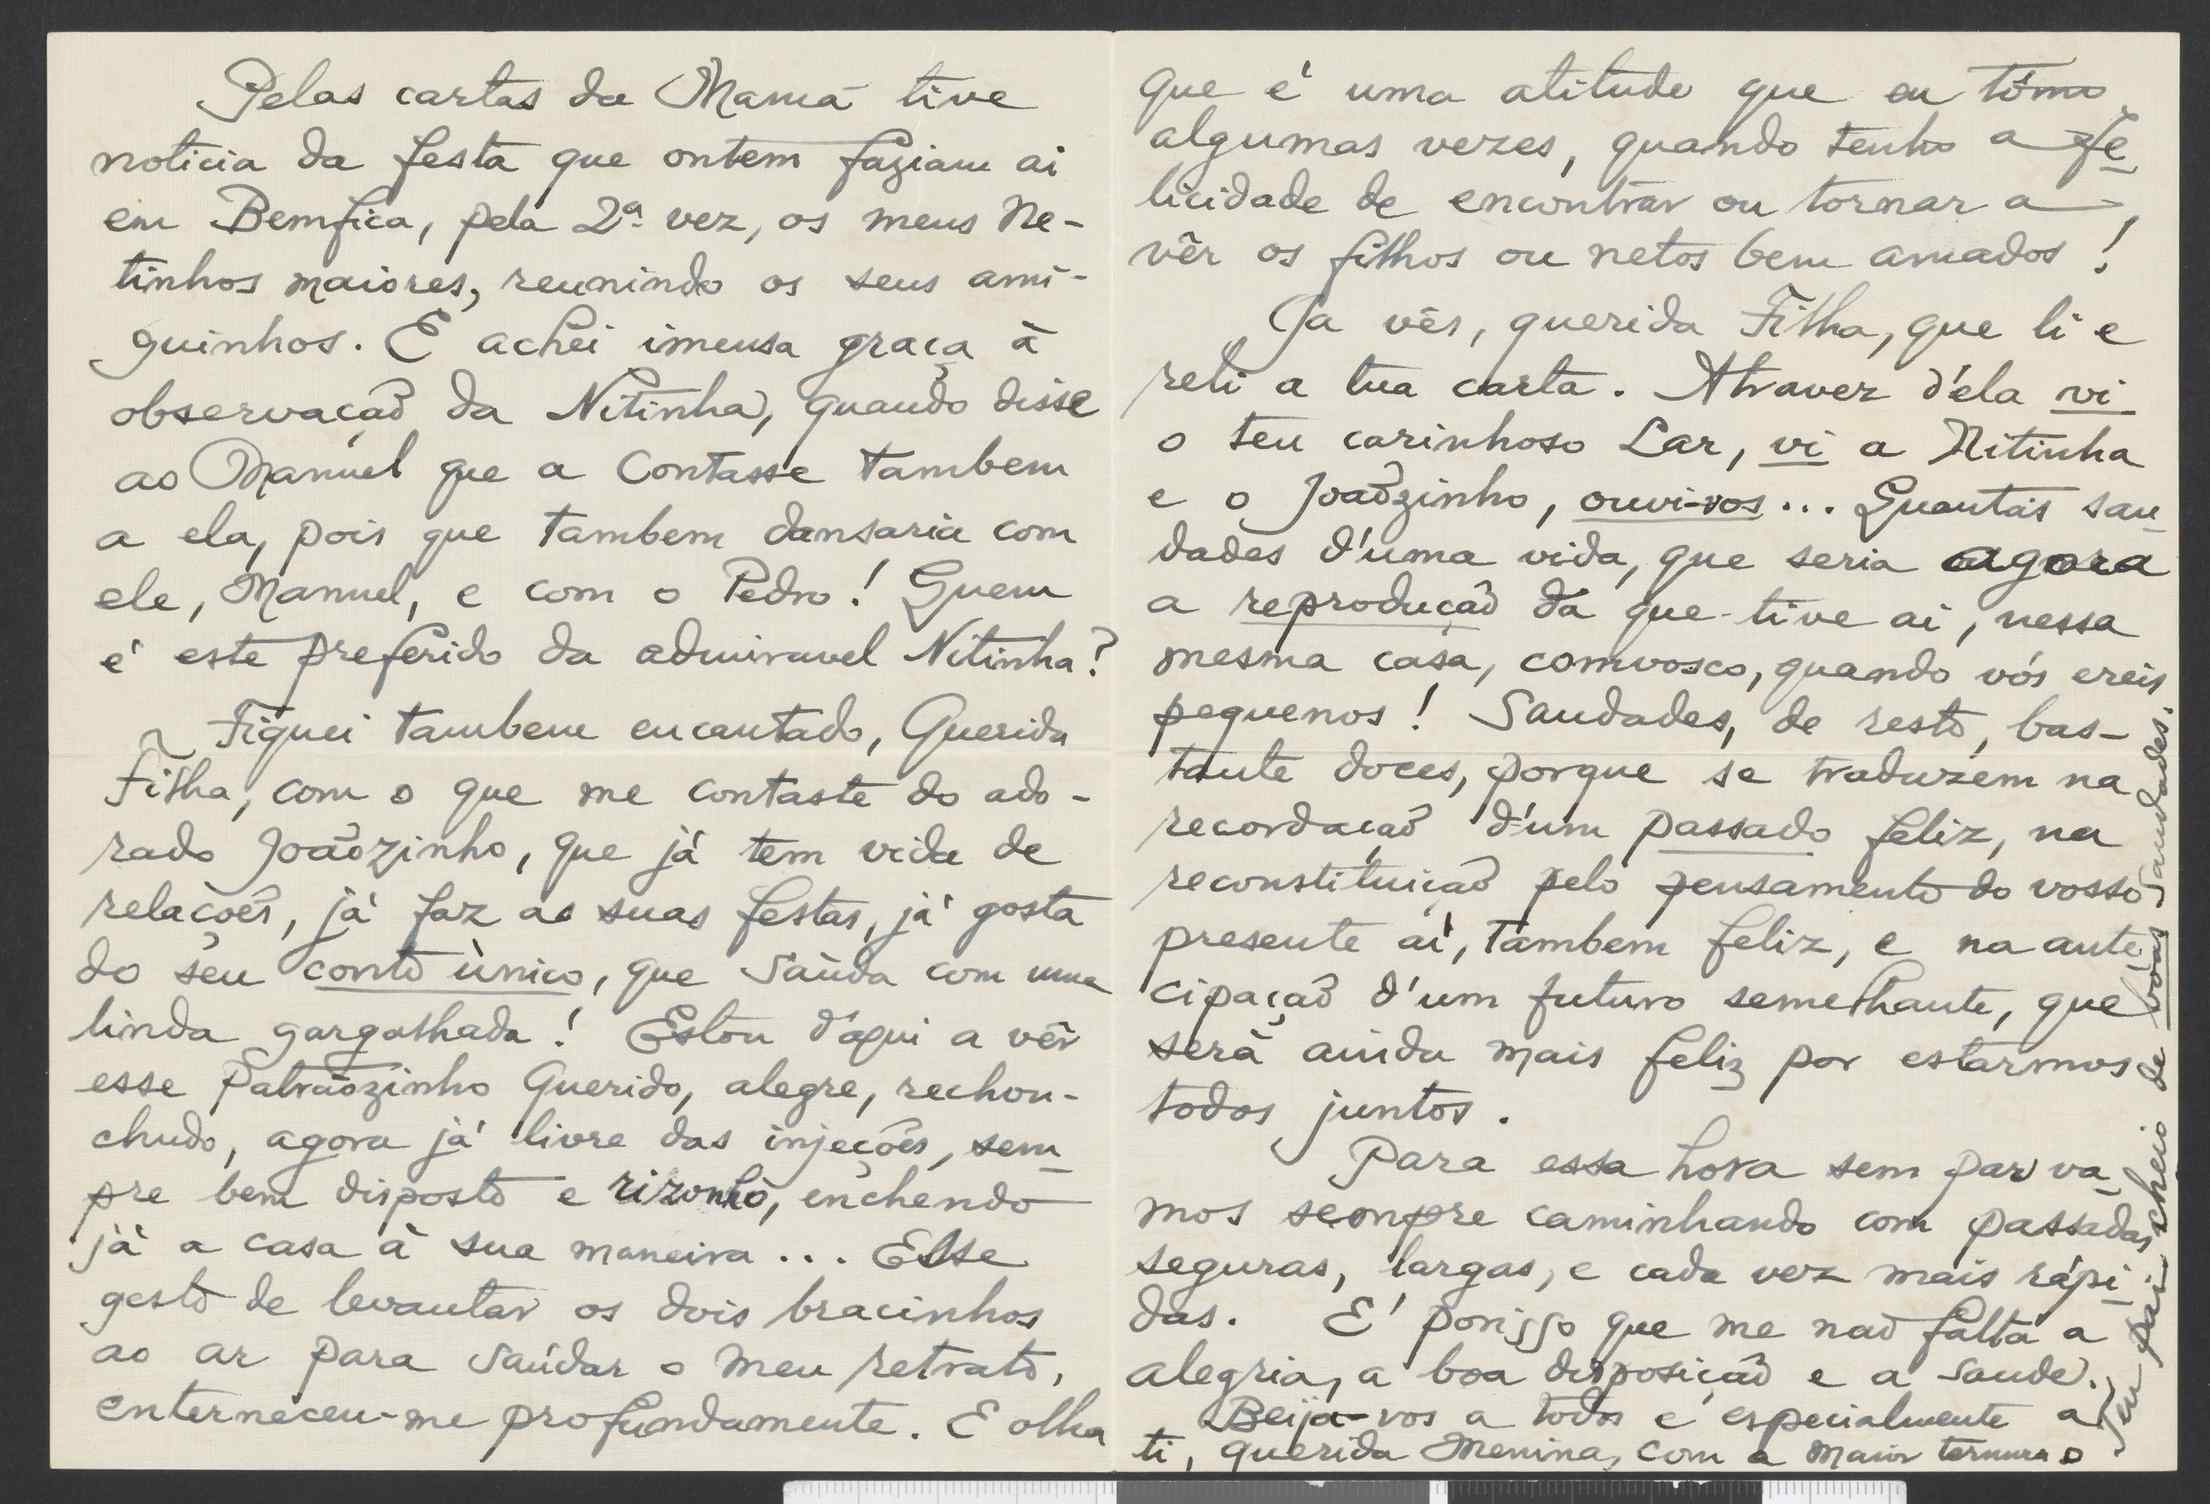 Pelas cartas da Mamã tive
noticia da festa que ontem faziam ai
em Bemfica, pela 2ª vez, os meus Ne-
tinhos maiores, reunindo os seus ami-
guinhos. E achei imensa graça à
observação da Nitinha, quando disse
ao Manuel que a contasse tambem
a ela, pois que tambem dansaria com
ele, Manuel, e com o Pedro! Quem
é este preferido da admiravel Nitinha?
Fiquei tambem encantado, Querida
Filha, com o que me contaste do ado-
rado Joãozinho, que já tem vida de
relações, já faz as suas festas, já gosta
do seu conto ùnico, que saùda com uma
linda gargalhada! Estou d'aqui a vêr
esse Patrãozinho Querido, alegre, rechon-
chudo, agora já livre das injeções, sem-
pre bem disposto e rizonho, enchendo
já a casa à sua maneira... Esse
gesto de levantar os dois bracinhos
ao ar para saúdar o meu retrato,
enterneceu-me profundamente. E olha
que é uma atitude que eu tômo
algumas vezes, quando tenho a fe-
licidade de encontrar ou tornar a
vêr os filhos ou netos bem amados!
Ja vês, querida Filha, que li e
reli a tua carta. Atravez d'ela vi
o teu carinhoso Lar, vi a Nitinha
e o Joãozinho, ouvi-vos... Quantas sau-
dades d'uma vida, que seria agora
a reprodução da que tive ai, nessa
mesma casa, comvosco, quando vós ereis
pequenos! Saudades, de resto, bas-
tante doces, porque se traduzem na
recordação d'um passado feliz, na
reconstituição pelo pensamento do vosso
presente aí, tambem feliz, e na ante-
cipação d'um futuro semelhante, que
será ainda mais feliz por estarmos
todos juntos.
Para essa hora sem par va-
mos sempre caminhando com passadas
seguras, largas, e cada vez mais rápi-
das. E' porisso que me não falta a
alegria, a boa disposição e a saude.
Beija-vos a todos e especialmente a
ti, querida Menina, com a maior ternura o
Teu pai cheio de vóas saudades.